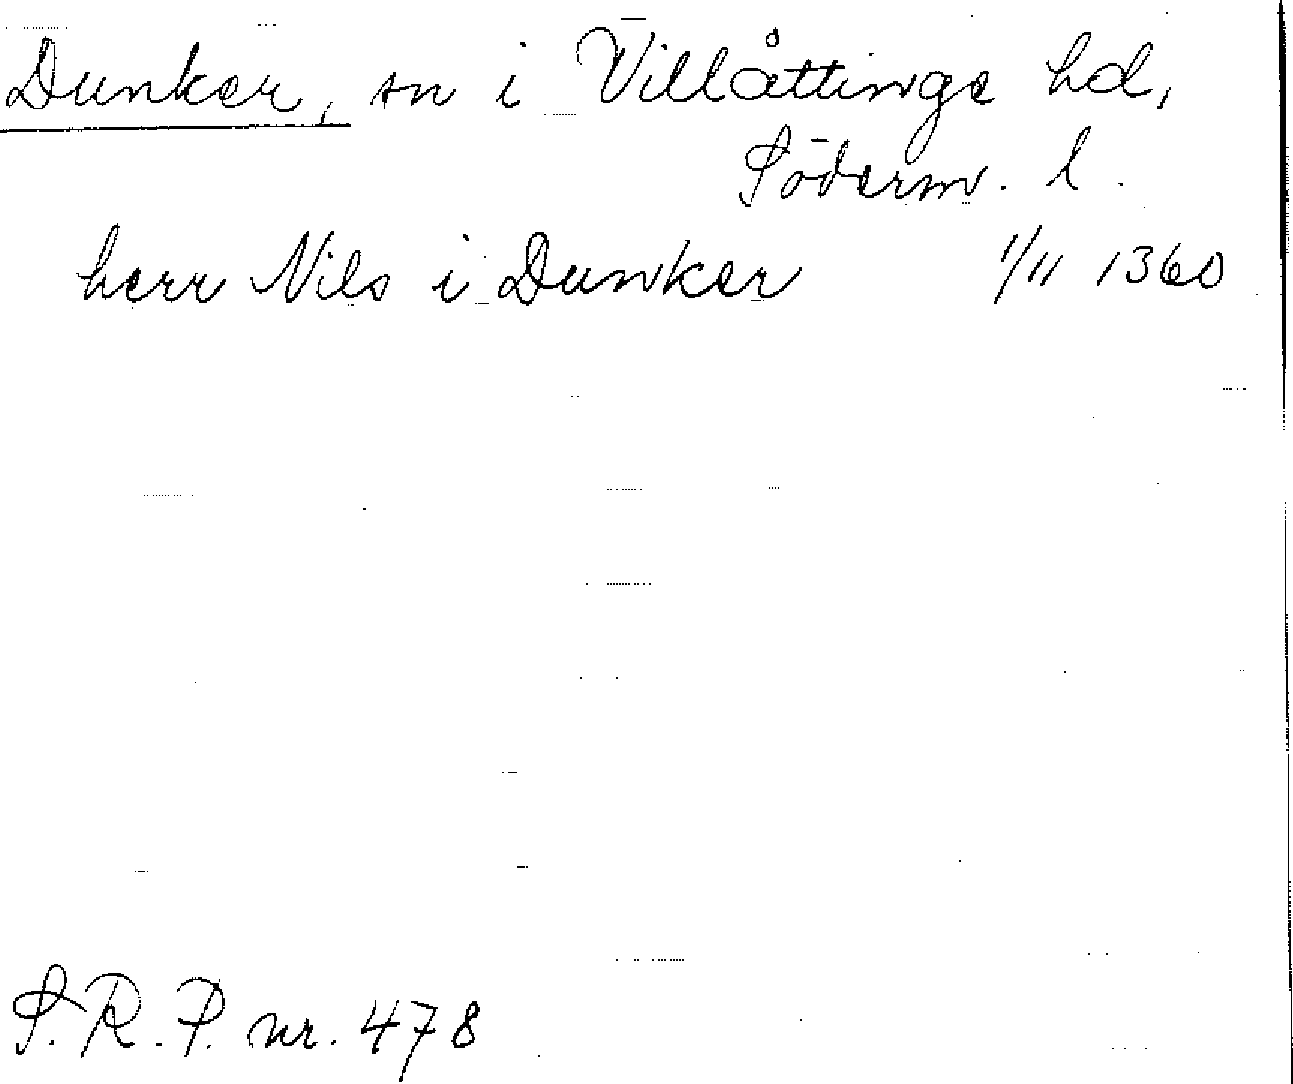 Dunker, sn i Villåttinge hd,
Söderm. l.
herr Nils i Dunker 1/11 1360
S. R. P. nr. 478